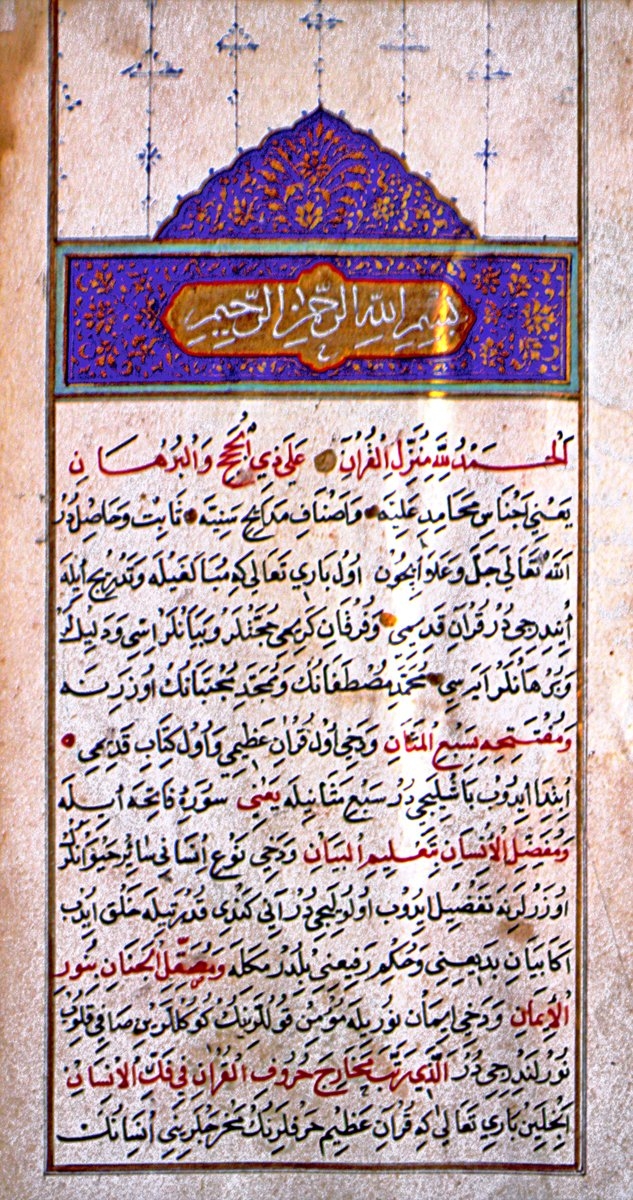 بِسْمِ اللهِ الرَّحْمٰنِ الرَّحِيمِ
اَلْحَمْدُ لِلّٰهِ مُنَزِّلِ الْقُرْاٰنِ عَلَى ذِي الْحُجَجِ وَالْبُرْهَانِ
يَعْنِي اَجْنَاسِ مَحَامِدِ عَلِيَّه وَاَصْنَافِ مَدَايِحِ سَنِيَّه ثَابِتْ وَحَاصِلْ دُرْ
اللّٰه تَعَالَى جَلَّ وَعَلَا اِيچُونْ اُولْ بَارِي تَعَالَى كِه مُبَالَغَيْلَه وَتَدْرِيجْ اِيلَه
اِنْدِرِجِي دُرْ قُرْاٰنِ قَدِيمِي وَفُرْقَانِ كَرِيمِي حُجَّتْلَرْ وَبَيَانْلَرْ اِسِّي وَدَلِيلْ
وَبُرْهَانْلَرْ اِيَرْسِي مُحَمَّدِ مُصْطَفَانُكْ وَمُمَجَّدِ مُجْتَبَانُكْ اُوزَرِنَه
وَمُفْتَتِحِهِ بِسَبْعِ الْمَثَانِ وَدَخِي اُولْ قُرْاٰنِ عَظِيمِي وَاُولْ كِتَابِ قَدِيمِي
اِبْتِدَا اِيدُوبْ بَاشْلَيِجِي دُرْ سَبْعِ مَثَانِيلَه يَعْنِي سُورَۀِ فَاتِحَه اِيلَه
وَمُفَضِّلِ الْاِنْسَانِ بِتَعْلِيمِ الْبَيَانِ وَدَخِي نَوْعِ اِنْسَانِي سَائِرِ حَيَوَانْلَرْ
اُوزَرْلَرِنَه تَفْضِيلْ اِيدُوبْ اُولُولَيِجِي دُرْ اَنِي كَنْدِي قُدْرَتِيلَه خَلْقْ اِيدُبْ
اَكَا بَيَانِ بَدِيعِنِي وَحُكْمِ رَفِيعِنِي بِلْدُرْمَكْلَه وَمُصَقِّلِ الْجَنَانِ بِنُورِ
الْاِيمَانِ وَدَخِي اِيمَانْ نُورِيلَه مُؤْمِنْ قُولْلَرِينِكْ كُوكُلْلَرِينْ صَافِي قُلُوبْ
نُورْلَنْدِرِجِي دُرْ اَلَّذِي رَتَّبَ مَخَارِجَ حُرُوفِ الْقُرْاٰنِ فِي فَكِّ الْاِنْسَانِ
اَنْجِلَيِنْ بَارِي تَعَالَى كِه قُرْاٰنِ عَظِيمْ حَرْفْلَرِنُكْ مَخْرَجْلَرِينِي اِنْسَانُكْ